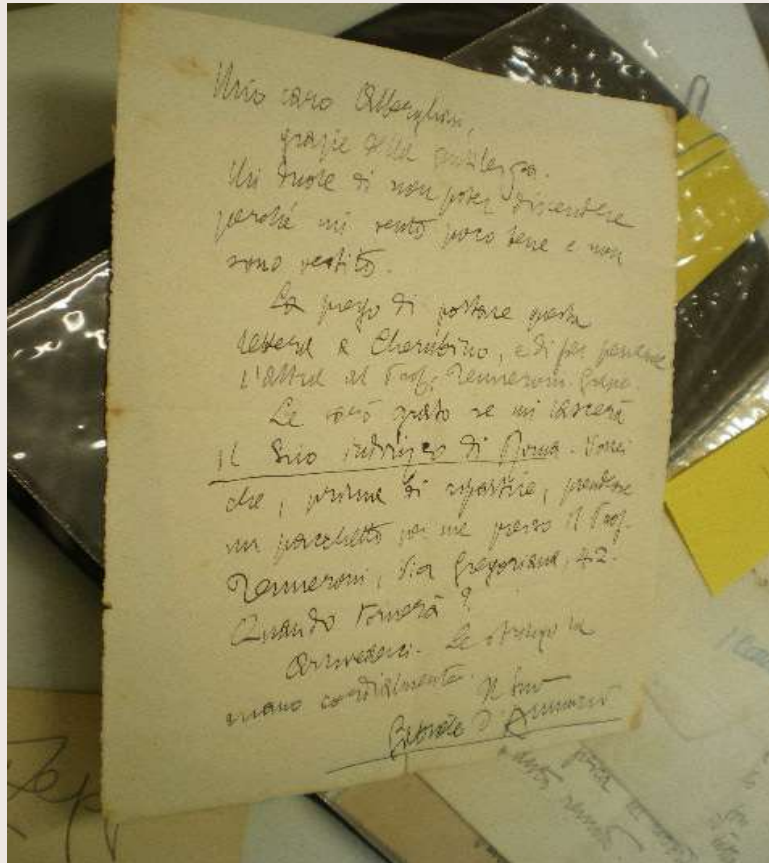 Mio caro Alberghini,
grazie della gentilezza.
Mi duole di non poter discendere
perché mi sento poco bene e non
sono vestito.
La prego di portare questa
lettera a Cherubino, e di far
l'altra al Prof. Tenneroni. Grazie.
Le sarò grato se mi lascerà
il Suo indirizzo di Roma. Vorrei
che, prima di ripartire, prendesse
un pacchetto per me presso il Prof.
Tenneroni, Via Gregoriana, 42.
Quando tornerà?
Arrivederci. Le stringo la
mano cordialmente.
Il Suo
Gabriele d'Annunzio